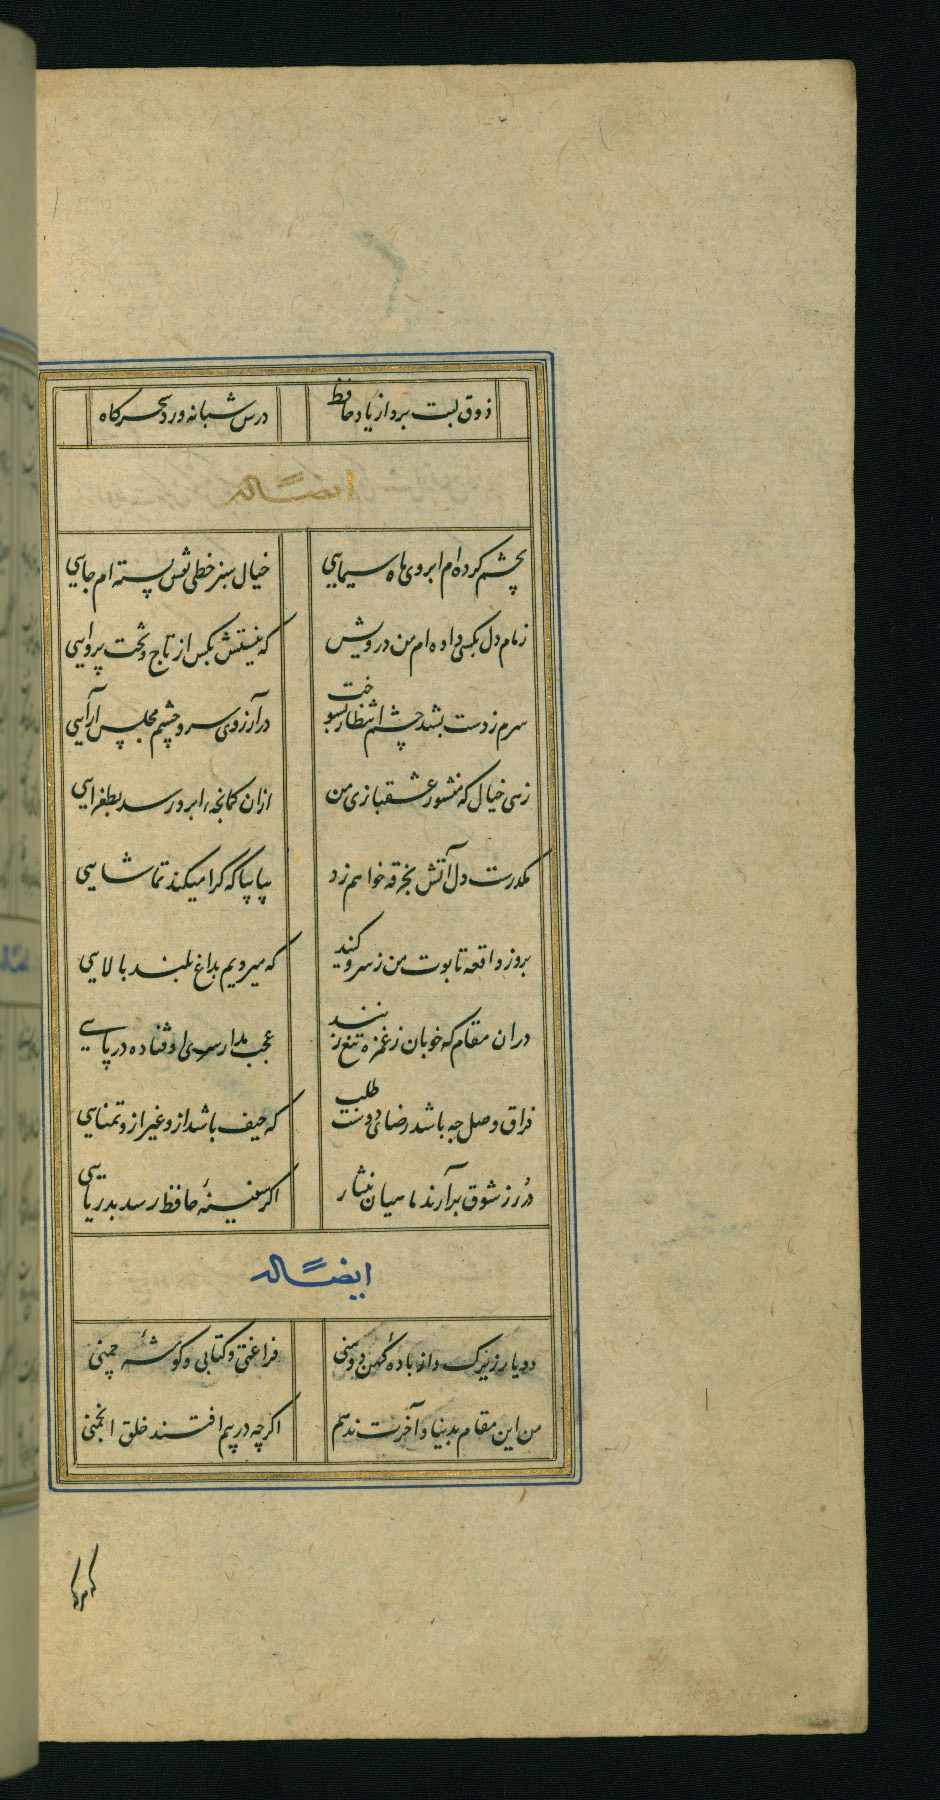 ذوق لبت برد از یاد حافظ درس شبانه ورد سحرکاه
ایضاً له
بچشم کرده‌ام ابروی ماه سیمایی خیال سبز خطی نقش بسته‌ام جایی
زمام دل بکسی داده‌ام من درویش که نیستش بکس از تاج و تخت پروایی
سرم ز دست بشد چشم انتظار بسوخت در آرزوی سر و چشم مجلس آرایی
زهی خیال که منشور عشقبازی من ازان کمانچه ابرو رسد بطغرایی
مکدرست دل آتش بخرقه خواهم زد بیا بیا که کرا میکند تماشایی
بروز واقعه تابوت من ز سرو کنید که میرویم بداغ بلند بالایی
دران مقام که خوبان ز غمزه تیغ زنند عجب مدار سری اوفتاده در پایی
فراق و وصل چه باشد رضای دوست طلب که حیف باشد ازو غیر ازو تمنایی
درر ز شوق برآرند ماهیان نثار اکر سفینهٔ حافظ رسد بدریایی
ایضاً له
دو یار زیرک و از بادهٔ کهن دو منی فراغتی و کتابی و کوشهٔ چمنی
من این مقام بدنیا و آخرت ندهم اکرچه در پیم افتند خلق انجمنی